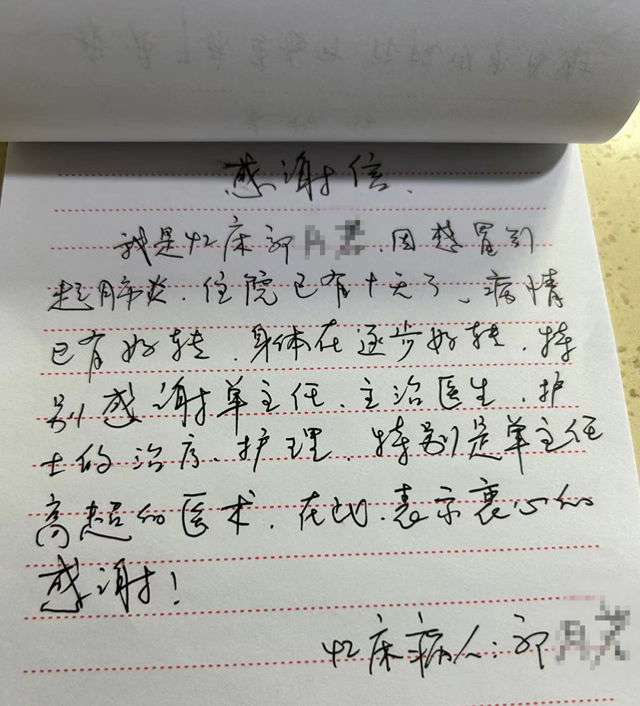 感谢信.
我是42床郭 因感冒引
起肺炎.住院已有十天了、病情
已有好转.身体在逐步好转.特
别感谢单主任.主治医生.护
士的治疗、护理.特别是单主任
高超的医术.在此.表示衷心的
感谢!
42床病人:郭